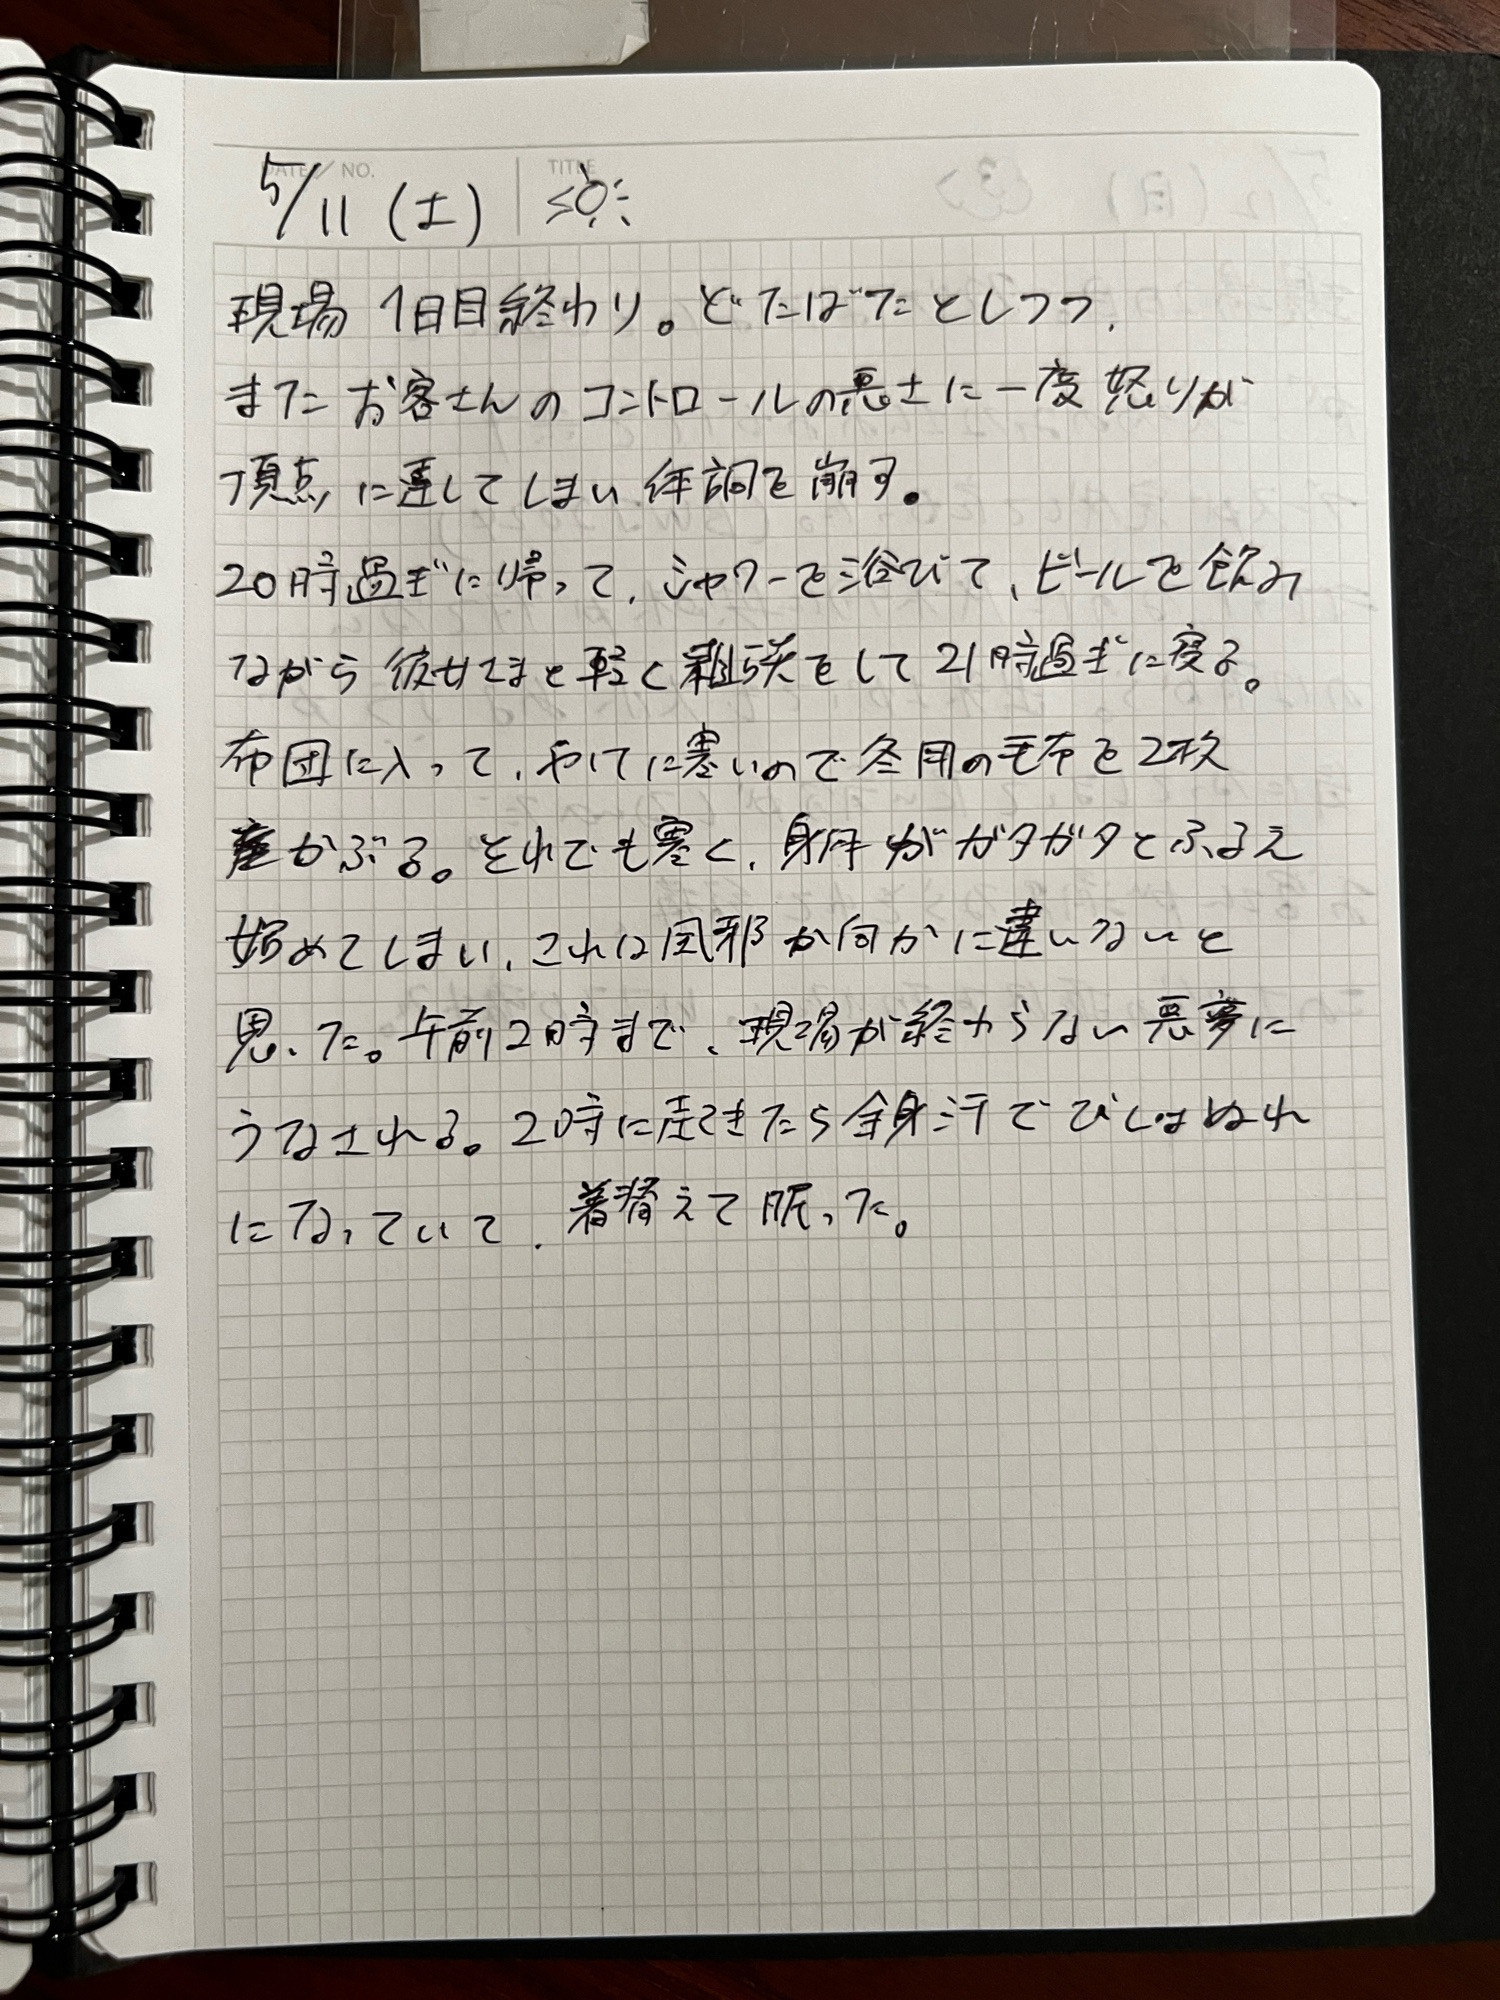 DATE / NO.
TITLE
5/11 (土)
現場 1日目終わり。どたばたとしつつ、
またお客さんのコントロールの悪さに一度怒りが
頂点に達してしまい体調を崩す。
20時過ぎに帰って、シャワーを浴びて、ビールを飲み
ながら彼女さまと軽く雑談をして21時過ぎに寝る。
布団に入って、やけに寒いので冬用の毛布を2枚
かぶる。それでも寒く、身体がガタガタとふるえ
始めてしまい、これは風邪か何かに違いないと
思った。午前2時まで、現場が終わらない悪夢に
うなされる。2時に起きたら全身汗でびしょぬれ
になっていて、着替えて眠った。